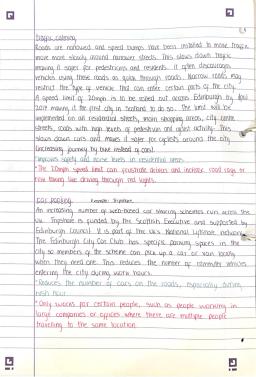 Traffic calming
Roads are narrowed and speed bumps have been installed to make traffic
move more slowly around narrower streets. This slows down traffic
making it safer for pedestrians and residents. It often discourages
vehicles using these roads as quick through roads. Narrow roads may
restrict the type of vehicle that can enter certain parts of the city.
A speed limit of 20mph is to be rolled out across Edinburgh by
making it the first city in Scotland to do so. The limit will be
implemented on all residential streets, main shopping areas, city centre
streets, roads with high levels of pedestrian and cyclist activity. This
slows down cars and makes it safer for cyclists around the city
(increasing journey by bike instead of car).
*Improves safety and noise levels in residential areas.
*The 20mph speed limit can frustrate drivers and increase road rage or
risk taking like driving through red lights.
Car Pooling Example: Tripshare
An increasing number of web-based car sharing schemes run across the
UK. Tripshare is funded by the Scottish Executive and supported by
Edinburgh Council. It is part of the UK's National Liftshare network.
The Edinburgh City Car Club has specific parking spaces in the
city so members of the scheme can pick up a car or van locally
when they need one. This reduces the number of commuter vehicles
entering the city during work hours.
*Reduces the number of cars on the roads, especially during
rush hour.
*Only works for certain people, such as people working in
large companies or offices where there are multiple people
travelling to the same location.